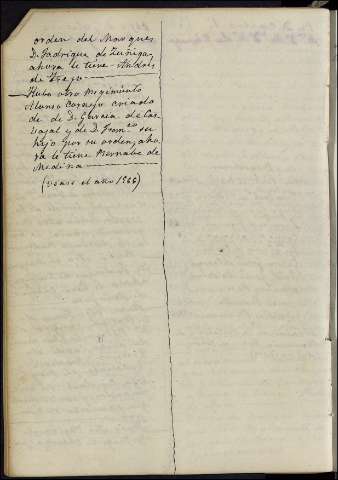 orden del Marques
D. Fadrique de Zuñiga,
ahora le tiene Andres
de Trejo
Hubo otro Regimiento
Alonso Cornejo criado
de de D. Garcia de Car
vajal y de D. Fran.co su
hijo por su orden, aho
ra le tiene Bernabe de
Medina
(vease el año 1566)